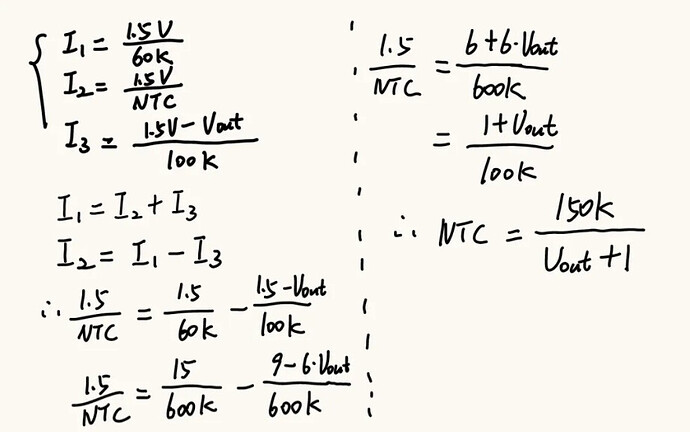 I₁ = 1.5V / 60k
I₂ = 1.5V / NTC
I₃ = 1.5V - Vout / 100k
I₁ = I₂ + I₃
I₂ = I₁ - I₃
∴ 1.5 / NTC = 1.5 / 60k - 1.5 - Vout / 100k
1.5 / NTC = 15 / 600k - 9 - 6·Vout / 600k
1.5 / NTC = 6 + 6·Vout / 600k
= 1 + Vout / 100k
∴ NTC = 150k / Vout + 1